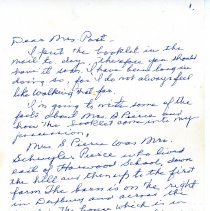 Dear Mrs. Post.
I put the booklet in the
mail to day. Therefore you should
have it soon. I have been long in
doing so, for I do not always feel
like walking that far.
I'm going to write some of the
facts about Mrs. A Pierce and
how this booklet came to my
possession.
Mrs. S Pierce was Mrs.
Schuyler Pierce who lived
east of Harwood School, down
the hill and then up to the first
farm. The barn is on the right
in Duxbury and across the
the house which is in